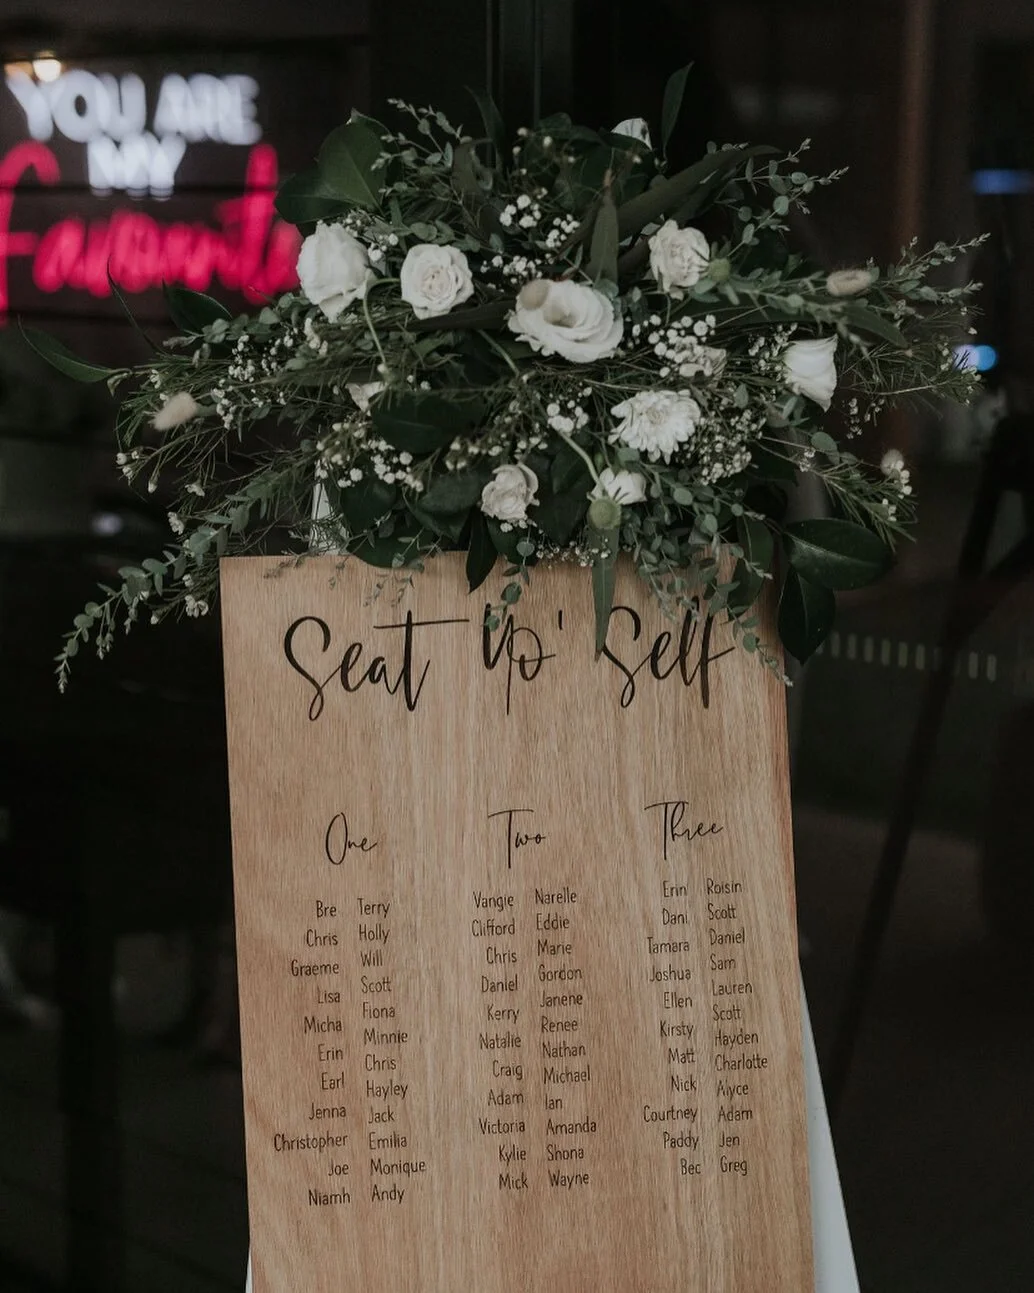 YOU ARE
MY
Favourite
Seat Yo' Self
One
Bre Terry
Chris Holly
Graeme Will
Lisa Scott
Micha Fiona
Erin Minnie
Earl Chris
Jenna Hayley
Christopher Jack
Joe Emilia
Niamh Monique
Andy
Two
Vangie Narelle
Clifford Eddie
Chris Marie
Daniel Gordon
Kerry Janene
Natalie Renee
Craig Nathan
Adam Michael
Victoria Ian
Kylie Amanda
Mick Shona
Wayne
Three
Erin Roisin
Dani Scott
Tamara Daniel
Joshua Sam
Ellen Lauren
Kirsty Scott
Matt Hayden
Nick Charlotte
Courtney Alyce
Paddy Adam
Bec Jen
Greg